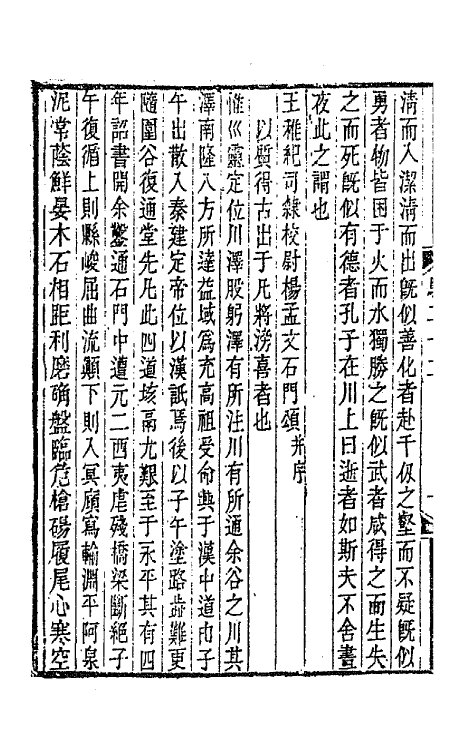 清而入潔清而出旣似善化者赴千仭之壑而不疑旣似
勇者物皆困于火而水獨勝之旣似武者咸得之而生失
之而死旣似有德者孔子在川上曰逝者如斯夫不舍晝
夜此之謂也
王稚紀司隸校尉楊孟文石門頌并序
以質得古出于凡將滂喜者也
惟巛靈定位川澤股躬澤有所注川有所通余谷之川其
澤南隆八方所達益域爲充高祖受命興于漢中道由子
午出散入秦建定帝位以漢詆焉後以子午塗路歮難更
隨圍谷復通堂光凡此四道垓鬲尤艱至于永平其有四
年詔書開余鑿通石門中遭元二西夷虐殘橋梁斷絕子
午復循上則縣峻屈曲流顚下則入冥廎寫輸淵平阿泉
泥常蔭鮮晏木石相距利磨确盤臨危槍碭履尾心寒空